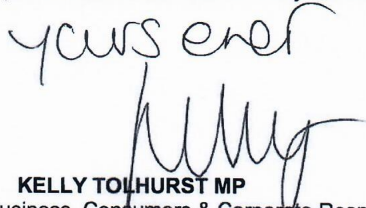 yours ever
Kelly
KELLY TOLHURST MP
usiness, Consumers & Corporate Resp